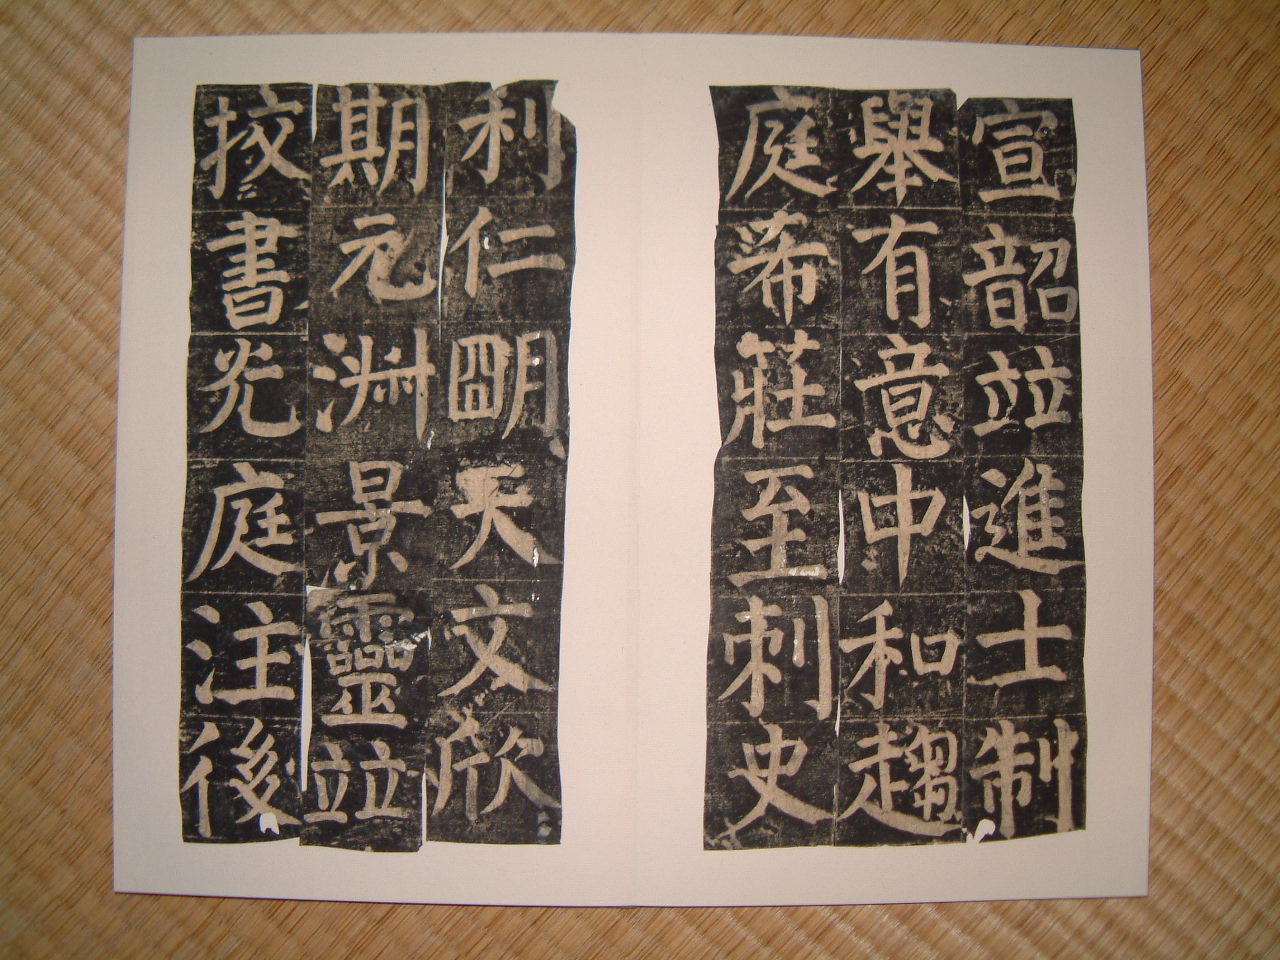 宣韶竝進士制
舉有意中和趨
庭希莊至刺史
利仁朙天文欣
期元淋景靈竝
挍書光庭注後